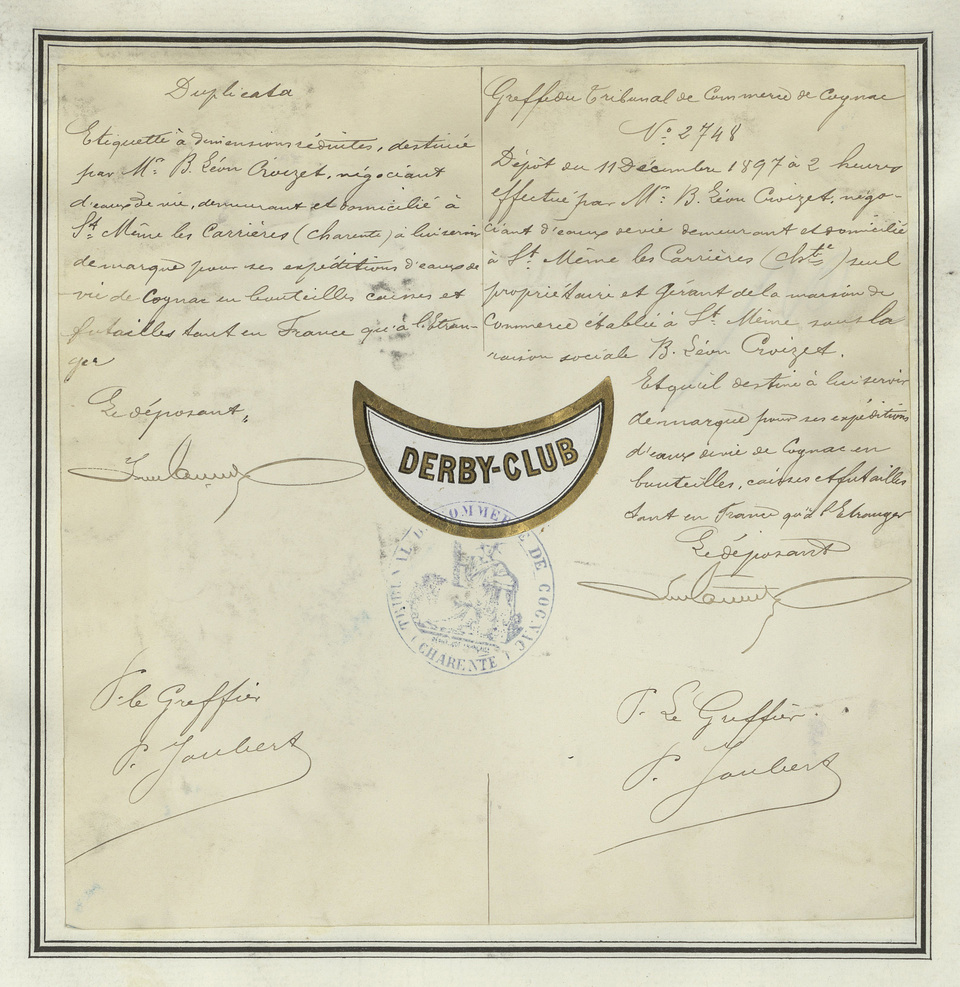 Duplicata
Etiquette à dimensions réduites, destinée
par Mr. B. Léon Croizet, négociant
d'eaux de vie, demeurant et domicilié à
St. Même les Carrières (Charente) à lui servir
de marque pour ses expéditions d'eaux de
vie de Cognac en bouteilles caisses et
futailles tant en France qu'à l'Etran-
ger
Le déposant,
P. le Greffier
P. Joubert
Greffe du Tribunal de Commerce de Cognac
No. 2748
Dépôt du 11 Décembre 1897 à 2 heures
effectué par Mr. B. Léon Croizet, négo-
ciant d'eaux de vie demeurant et domicilié
à St. Même les Carrières (chte) seul
propriétaire et Gérant de la maison de
Commerce établie à St. Même sous la
raison sociale B. Léon Croizet.
Et qu'il destine à lui servir
de marque pour ses expéditions
d'eaux de vie de Cognac en
bouteilles, caisses et futailles
tant en France qu'à l'Etranger
Le déposant
P. Le Greffier.
P. Joubert
DERBY-CLUB
TRIBUNAL DE COMMERCE DE COGNAC
(CHARENTE)